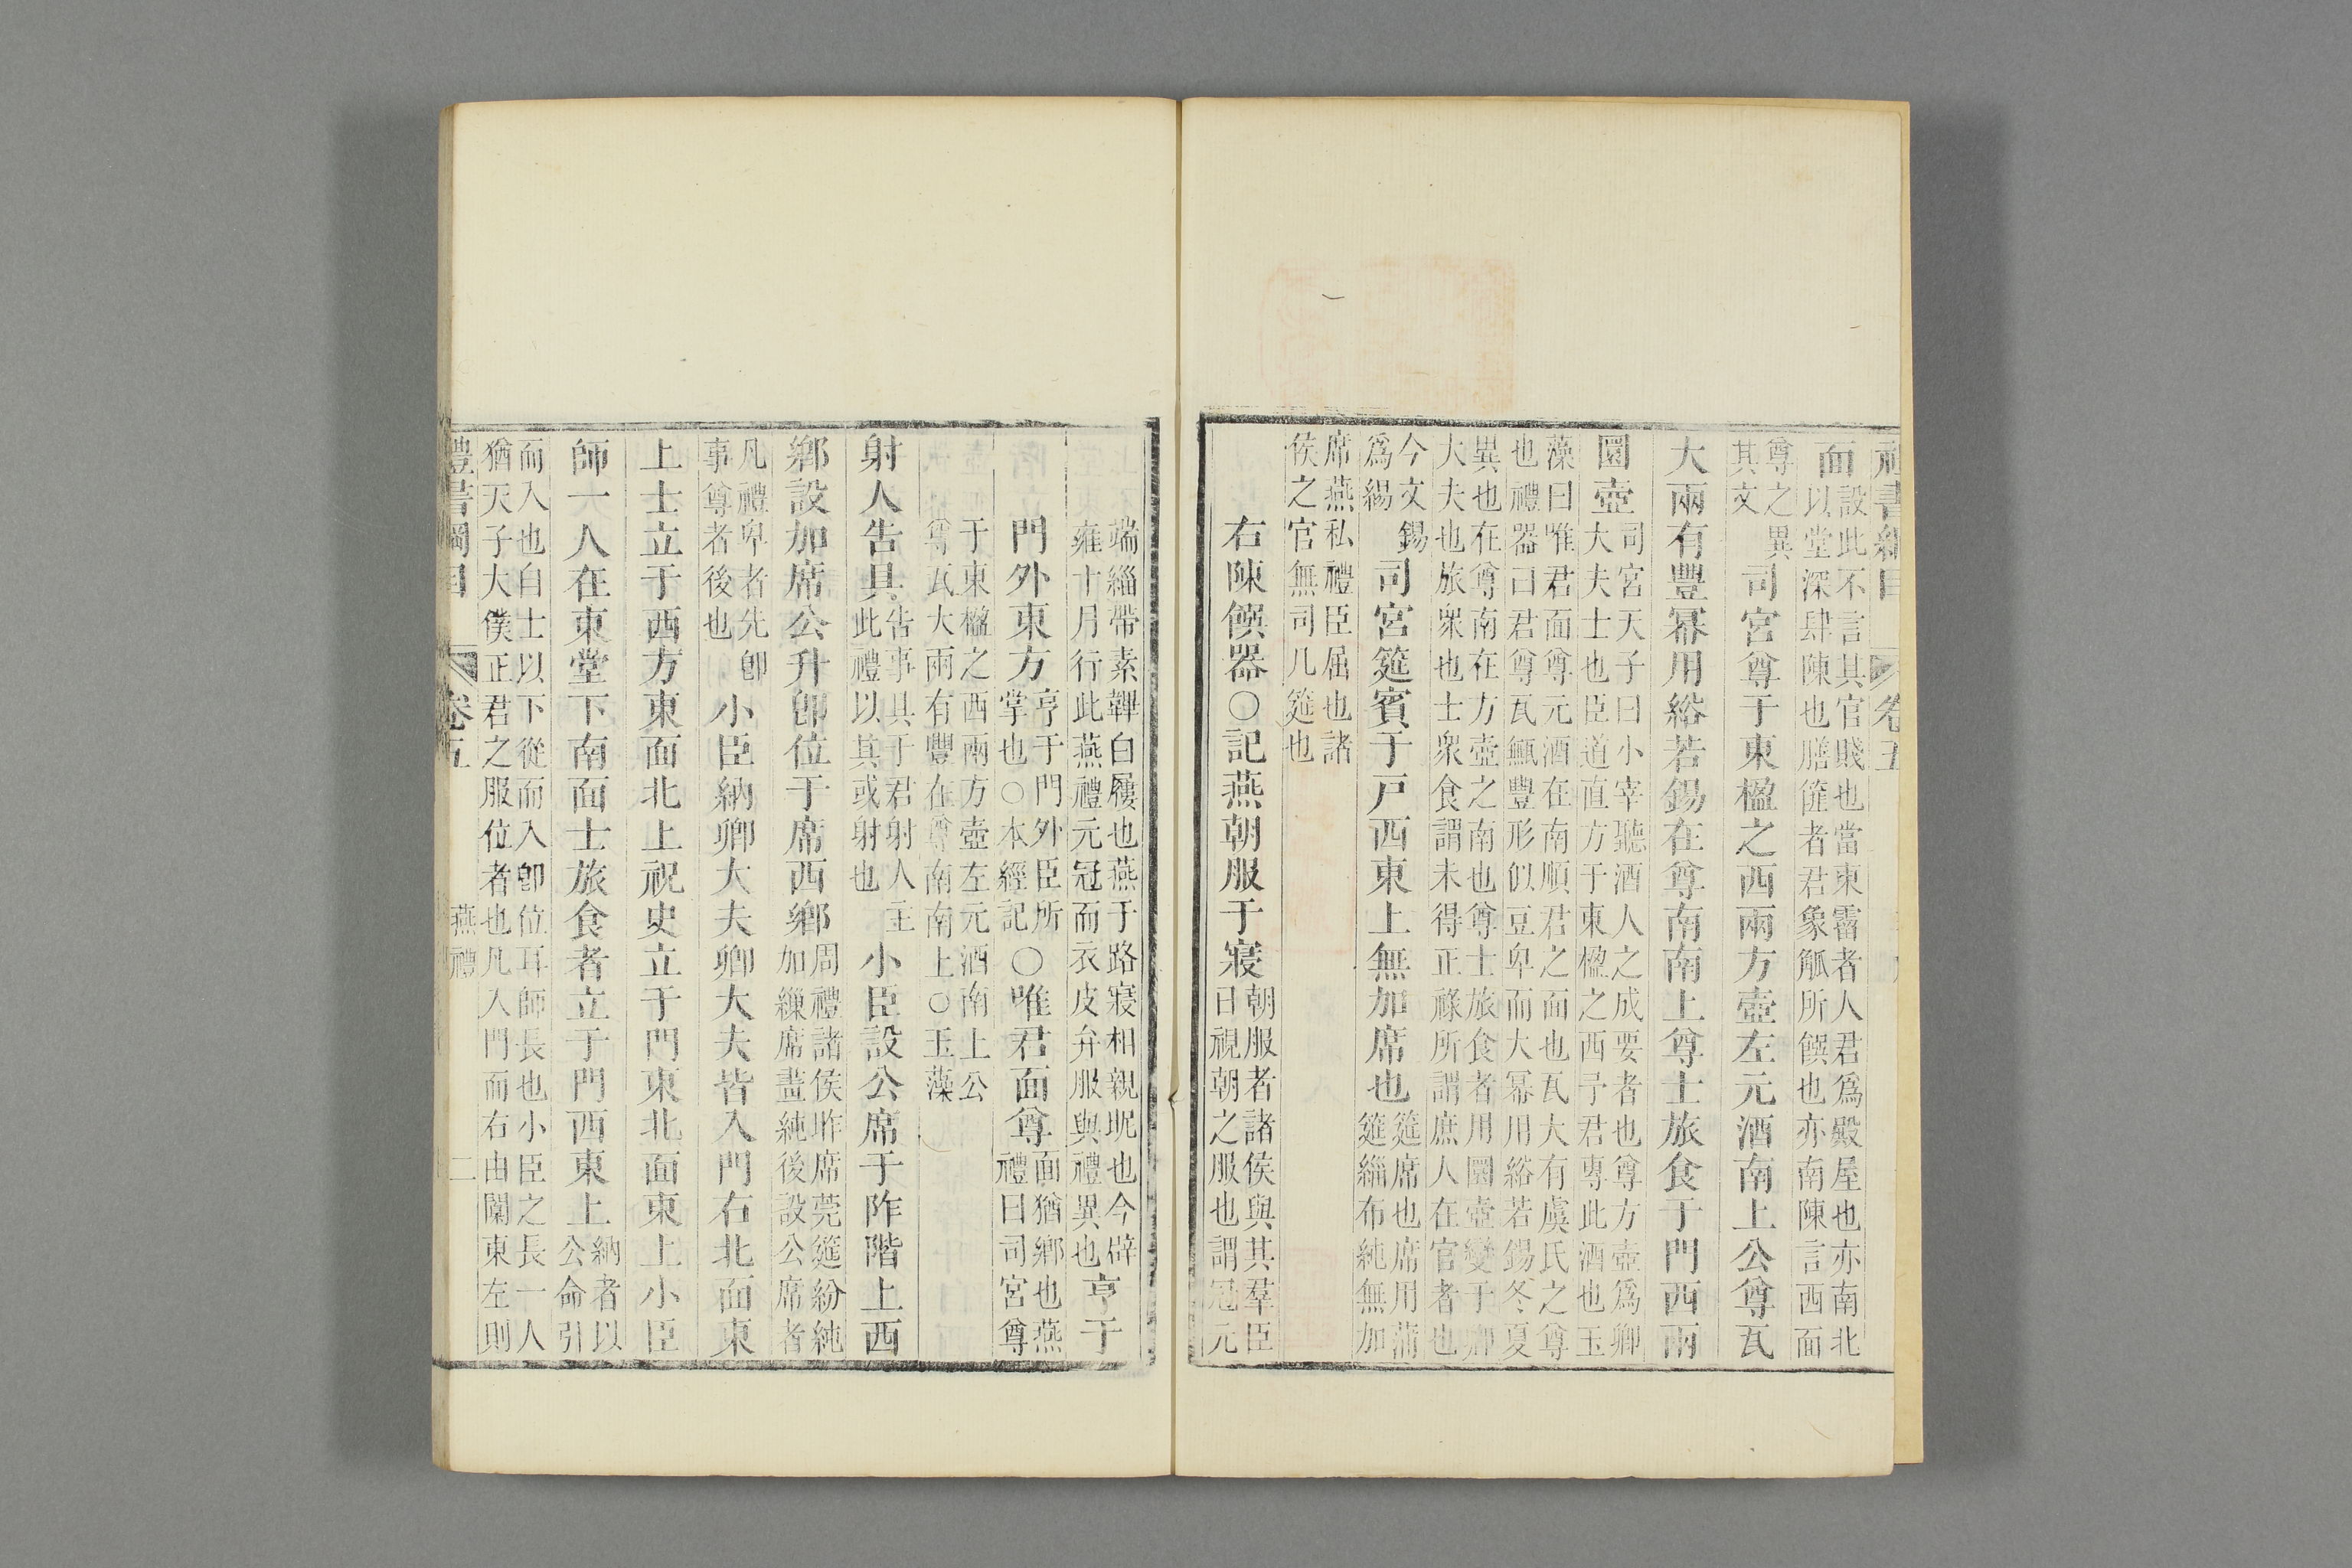 禮書綱目 卷五
面設此不言其官賤也當東霤者人君爲殿屋也亦南北以堂深肆陳也膳篚者君象觚所饌也亦南陳言西面
尊之異其文司宮尊于東楹之西兩方壺左元酒南上公尊瓦
大兩有豐冪用綌若錫在尊南南上尊士旅食于門西兩
圜壺司宮天子曰小宰聽酒人之成要者也尊方壺爲卿大夫士也臣道直方于東楹之西予君專此酒也玉
藻曰唯君面尊元酒在南順君之面也瓦大有虞氏之尊也禮器曰君尊瓦甒豐形似豆卑而大冪用綌若錫冬夏
異也在尊南在方壺之南也尊士旅食者用圜壺變于卿大夫也旅衆也士衆食謂未得正祿所謂庶人在官者也
今文錫爲緆司宮筵賓于戸西東上無加席也筵席也席用蒲筵緇布純無加
席燕私禮臣屈也諸侯之官無司几筵也
右陳饌器○記燕朝服于寢朝服者諸侯與其羣臣日視朝之服也謂冠元
端緇帶素韠白屨也燕于路寢相親昵也今辟雍十月行此燕禮元冠而衣皮弁服與禮異也亨于
門外東方亨于門外臣所掌也○本經記○唯君面尊面猶鄉也燕禮曰司宮尊
于東楹之西兩方壺左元酒南上公尊瓦大兩有豐在尊南南上○玉藻
射人告具告事具于君射人主此禮以其或射也小臣設公席于阼階上西
鄉設加席公升卽位于席西鄉周禮諸侯昨席莞筵紛純加繅席畫純後設公席者
凡禮卑者先卽事尊者後也小臣納卿大夫卿大夫皆入門右北面東
上士立于西方東面北上祝史立于門東北面東上小臣
師一人在東堂下南面士旅食者立于門西東上納者以公命引
而入也自士以下從而入卽位耳師長也小臣之長一人猶天子大僕正君之服位者也凡入門而右由闑東左則
禮書綱目 卷五 燕禮 二